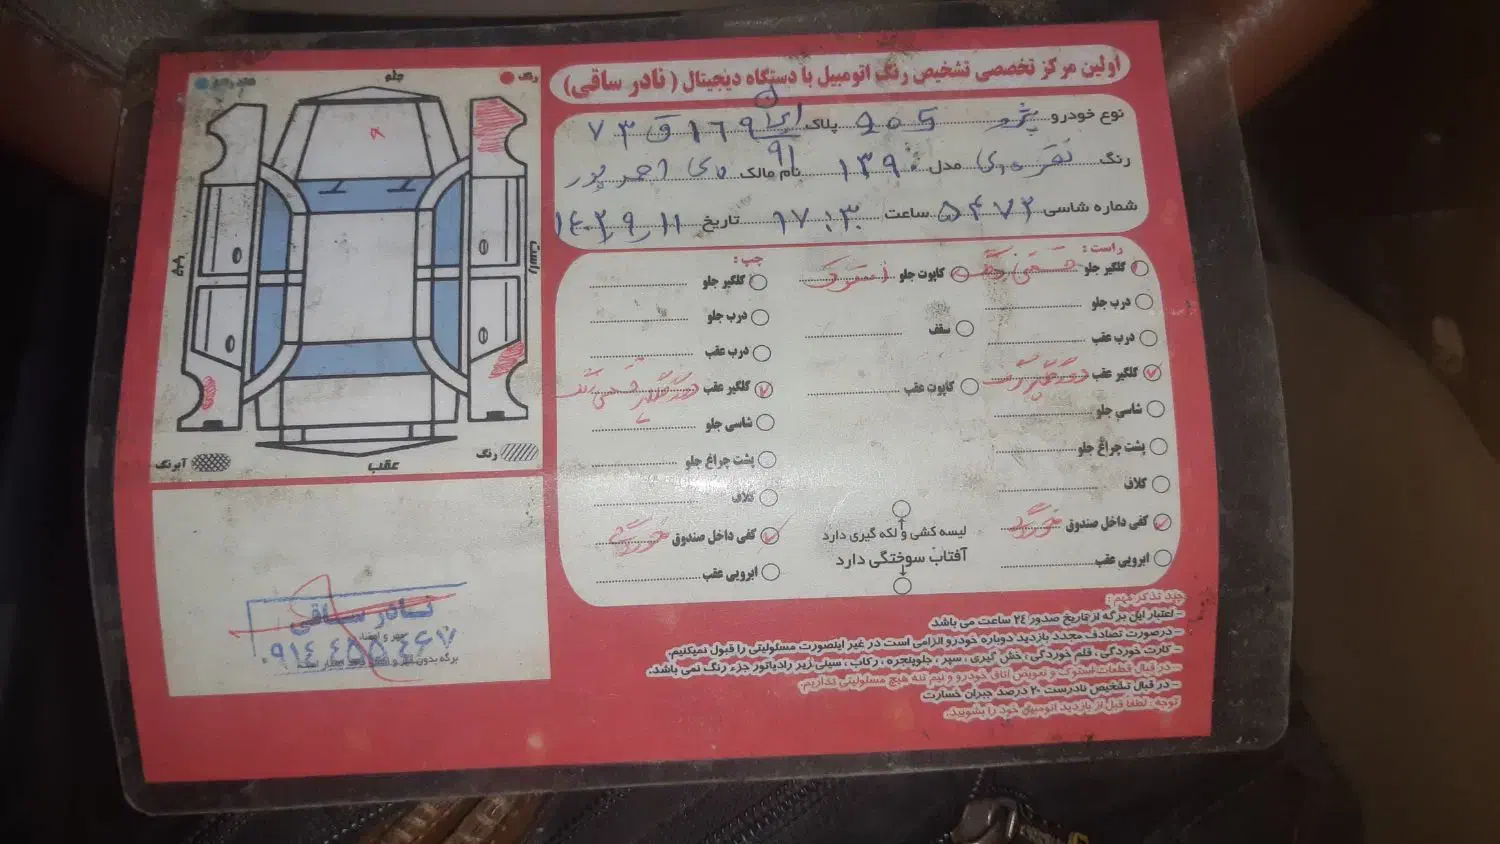 اولین مرکز تخصصی تشخیص رنگ اتومبیل با دستگاه دیجیتال ( نادر ساقی)
نوع خودرو پژو 405 پلاک ایران ۹۱ ۱۶۹ ق ۷۳
رنگ نقره‌ای مدل ۱۳۹۰ نام مالک احمدپور
شماره شاسی ۵۴۷۲ ساعت ۱۷:۳۰ تاریخ ۱۴۰۲٫۹٫۱۱
رنگ
جلو
راست
چپ
عقب
رنگ
آبرنگ
راست :
گلگیر جلو
درب جلو
درب عقب
گلگیر عقب
شاسی جلو
پشت چراغ جلو
کلاف
کفی داخل صندوق خوردگی
ابرویی عقب
کاپوت جلو استوک
سقف
کاپوت عقب
لیسه کشی و لکه گیری دارد
آفتاب سوختگی دارد
چپ :
گلگیر جلو
درب جلو
درب عقب
گلگیر عقب
شاسی جلو
پشت چراغ جلو
کلاف
کفی داخل صندوق خوردگی
ابرویی عقب
نادر ساقی
مهر و امضاء
۰۹۱۴ ۴۵۵ ۴۴۶۷
چند تذکر مهم :
- اعتبار این برگه از تاریخ صدور ۲٤ ساعت می باشد
- درصورت تصادف مجدد بازدید دوباره خودرو الزامی است در غیر اینصورت مسئولیتی را قبول نمیکنیم.
- کارت خوردگی، قلم خوردگی، خش گیری ، سپر ، جلوپنجره ، رکاب ، سینی زیر رادیاتور جزء رنگ نمی باشد.
- در قبال قطعات استوک و تعویض اتاق خودرو و نیم تنه هیچ مسئولیتی نداریم.
- در قبال تشخیص نادرست ۲۰ درصد جبران خسارت
توجه : لطفا قبل از بازدید اتومبیل خود را بشویید.